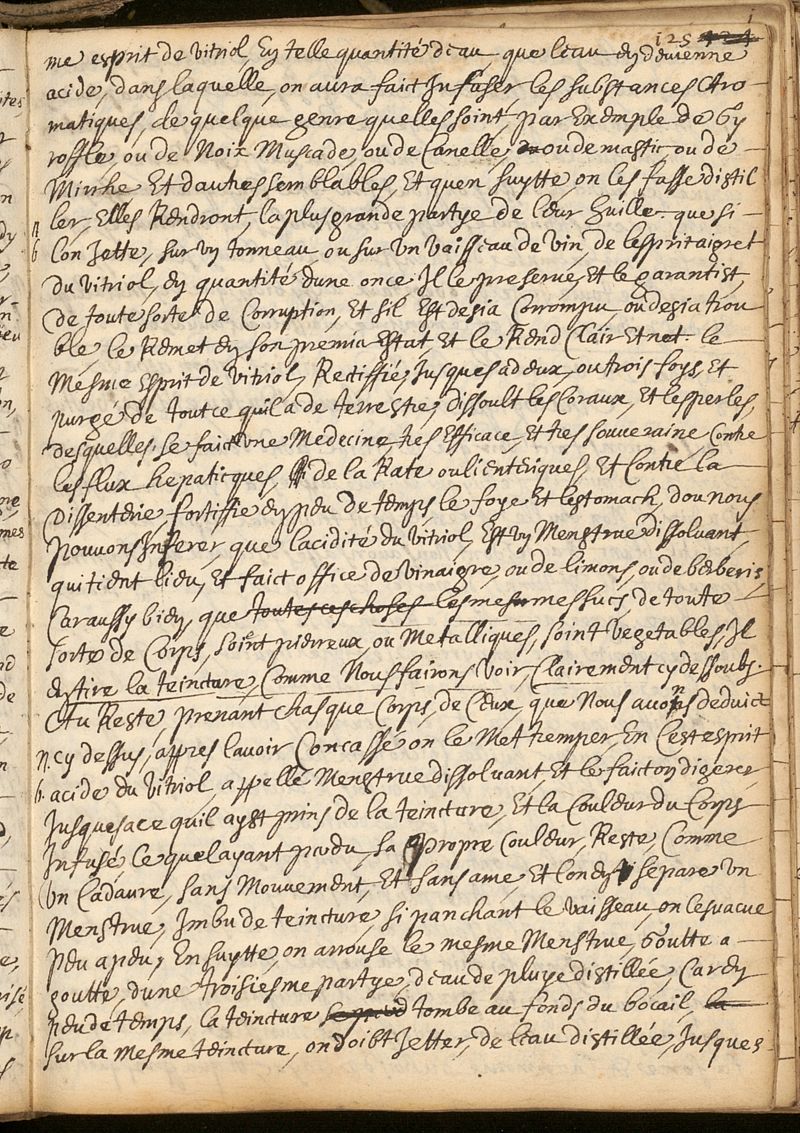 125 424
me esprit de vitriol, En telle quantité d'eau, que leau en devienne
acide, dans laquelle, on aura faict Infuser, les substances Aro
matiques, de quelque genre quelles soint, par Exemple de Gy
roffle, ou de Noix Muscade, ou de Canelle, ou de mastic ou de
Mirrhe Et dautres semblables, Et quen suytte, on les fasse distil
ler, Elles Rendront, la plus grande partye de leur huille. que si
lon Jette, sur un tonneau, ou sur Un vaisseau de vin, de lesprit aigret
du vitriol, en quantité dune once. Il le preserve, Et le garantist,
de toute sorte de Corruption, Et sil Est desia Corrompu, ou desia trou
ble, le Remet en son premia Estat Et le Rend Clair Et net. le
Mesme Esprit de vitriol, Rectiffié, Jusques a deux, ou trois foys, Et
purgé de tout ce quil a de terrestre, dissoult les Coraux, Et les perles,
desquelles. se faict une Medecine, tres Efficace, Et tres souveraine Contre
les flux hepaticques, de la Rate ou lienteriques, Et Contre la
Dissenterie, fortiffie en peu de temps le foye Et lestomach, dou nous
pouvons Inferer, que lacidité du vitriol, Est un Menstrue dissolvant,
qui tient lieu, Et faict office de vinaigre, ou de limons, ou de berberis,
Car aussy bien, que toutes ces choses les mesmes sucs, de toute
sorte de Corps, soint pierreux, ou Metalliques, soint vegetables, Il
En tire la teincture, Comme Nous fairons voir, Clairement cy dessoubs.
Au Reste prenant chasque Corps, de Ceux, que Nous avons deduict
n. cy dessus, appres lavoir Concassé on le Met tremper, En Cest esprit
b. acide du vitriol, appellé Menstrue dissolvant, Et le faict on digerer,
Jusques a ce quil ayt prins de la teincture, Et la Couleur du Corps
Infusé, Ce quelayant perdu, sa propre Couleur, Reste, Comme
Un Cadavre, sans Mouvement, Et sans ame, Et lon En separe Un
Menstrue, Imbu de teincture, si panchant le vaisseau, on lesvacue
peu a peu, En suytte, on arrouse le mesme Menstrue, Goutte a
goutte, dune troisiesme partye, deau de pluye distillée, Car en
peu de temps, la teincture tombe au fonds du bocail, la
sur la mesme teincture, on doibt Jetter, de leau distillée, Jusques